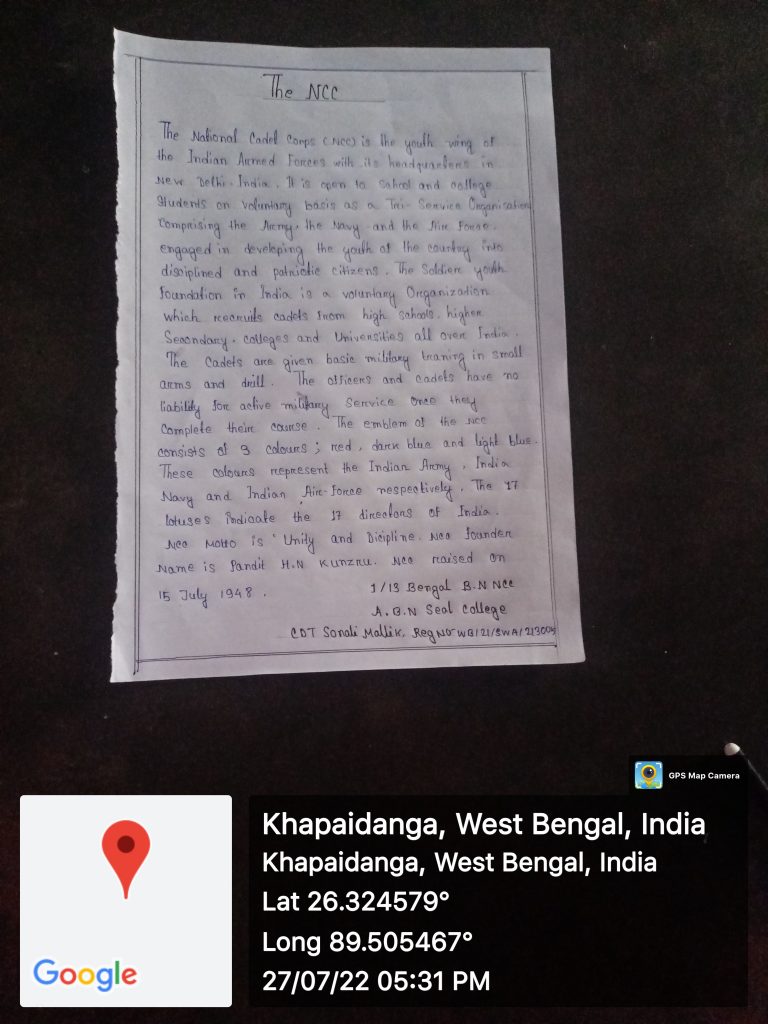 The NCC
The National Cadet Corps (NCC) is the youth wing of
the Indian Armed Forces with its headquarters in
New Delhi. India. It is open to school and college
Students on voluntary basis as a Tri-Service Organisation
Comprising the Army, the Navy and the Air Force.
engaged in developing the youth of the country into
disciplined and patriotic citizens. The Soldier youth
foundation in India is a voluntary Organization
which recruits cadets from high schools. higher
Secondary. colleges and Universities all over India.
The Cadets are given basic military traning in small
arms and drill. The officers and cadets have no
liability for active military Service once they
Complete their course. The emblem of the NCC
consists of 3 colours; red, dark blue and light blue.
These colours represent the Indian Army, India
Navy and Indian Air-Force respectively. The 17
lotuses indicate the 17 directors of India.
NCC Motto is 'Unity and Dicipline. NCC founder
Name is Pandit H.N Kunzru. NCC raised on
15 July 1948.
1/13 Bengal B.N NCC
A.B.N Seal College
CDT Sonali Mallik. Reg No-WB/21/SWA/213004
GPS Map Camera
Khapaidanga, West Bengal, India
Khapaidanga, West Bengal, India
Lat 26.324579°
Long 89.505467°
27/07/22 05:31 PM
Google